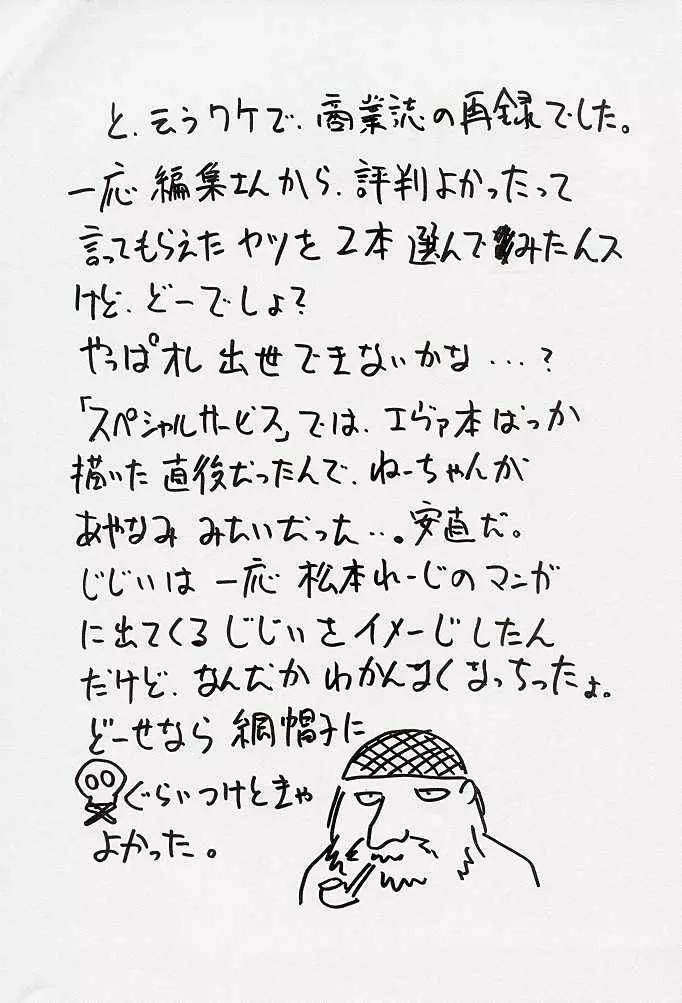 と、云うワケで、商業誌の再録でした。
一応 編集さんから、評判よかったって
言ってもらえた ヤツを 2本 選んで みたんス
けど、どーでしょ?
やっぱオレ 出世できないかな…?
「スペシャルサービス」では、エヴァ本ばっか
描いた 直後だったんで、ねーちゃんが
あやなみ みたいだった…。安直だ。
じじいは 一応 松本れーじのマンガ
に出てくる じじいをイメーじしたん
だけど、なんだか わかんなくなっちったよ。
どーせなら 網帽子に
ぐらいつけときゃ
よかった。